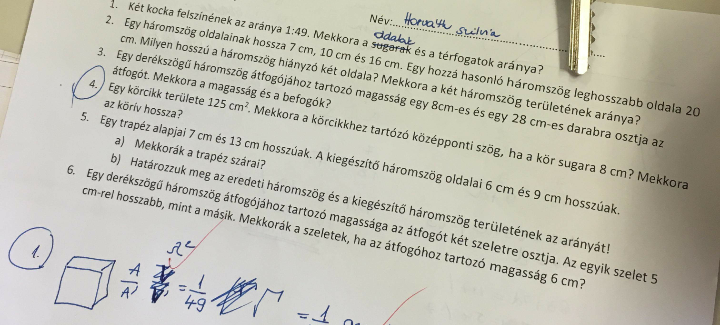 Név: Horváth Szilvia
1. Két kocka felszínének az aránya 1:49. Mekkora a sugarak oldalak és a térfogatok aránya?
2. Egy háromszög oldalainak hossza 7 cm, 10 cm és 16 cm. Egy hozzá hasonló háromszög leghosszabb oldala 20
cm. Milyen hosszú a háromszög hiányzó két oldala? Mekkora a két háromszög területének aránya?
3. Egy derékszögű háromszög átfogójához tartozó magasság egy 8cm-es és egy 28 cm-es darabra osztja az
átfogót. Mekkora a magasság és a befogók?
4. Egy körcikk területe 125 cm². Mekkora a körcikkhez tartózó középponti szög, ha a kör sugara 8 cm? Mekkora
az körív hossza?
5. Egy trapéz alapjai 7 cm és 13 cm hosszúak. A kiegészítő háromszög oldalai 6 cm és 9 cm hosszúak.
a) Mekkorák a trapéz szárai?
b) Határozzuk meg az eredeti háromszög és a kiegészítő háromszög területének az arányát!
6. Egy derékszögű háromszög átfogójához tartozó magassága az átfogót két szeletre osztja. Az egyik szelet 5
cm-rel hosszabb, mint a másik. Mekkorák a szeletek, ha az átfogóhoz tartozó magasság 6 cm?
1. A/A' = 1/49
= 1